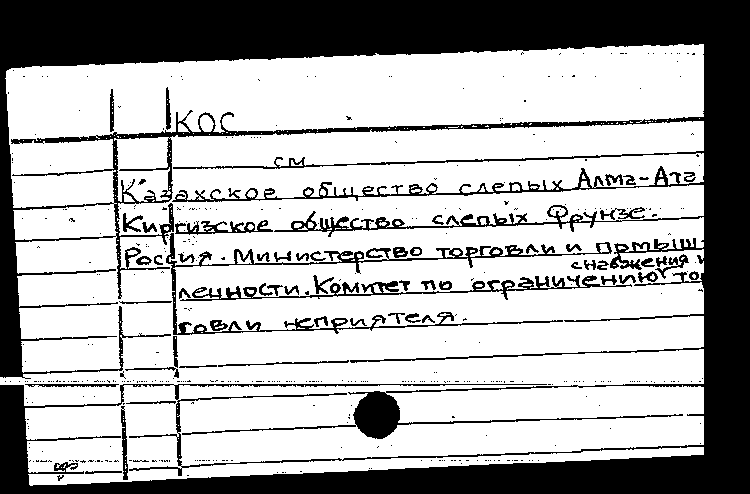 КОС
см.
Казахское общество слепых Алма-Ата
Киргизское общество слепых Фрунзе.
Россия. Министерство торговли и прмыш-
снабжения и
ленности. Комитет по ограничению тор
говли неприятеля.